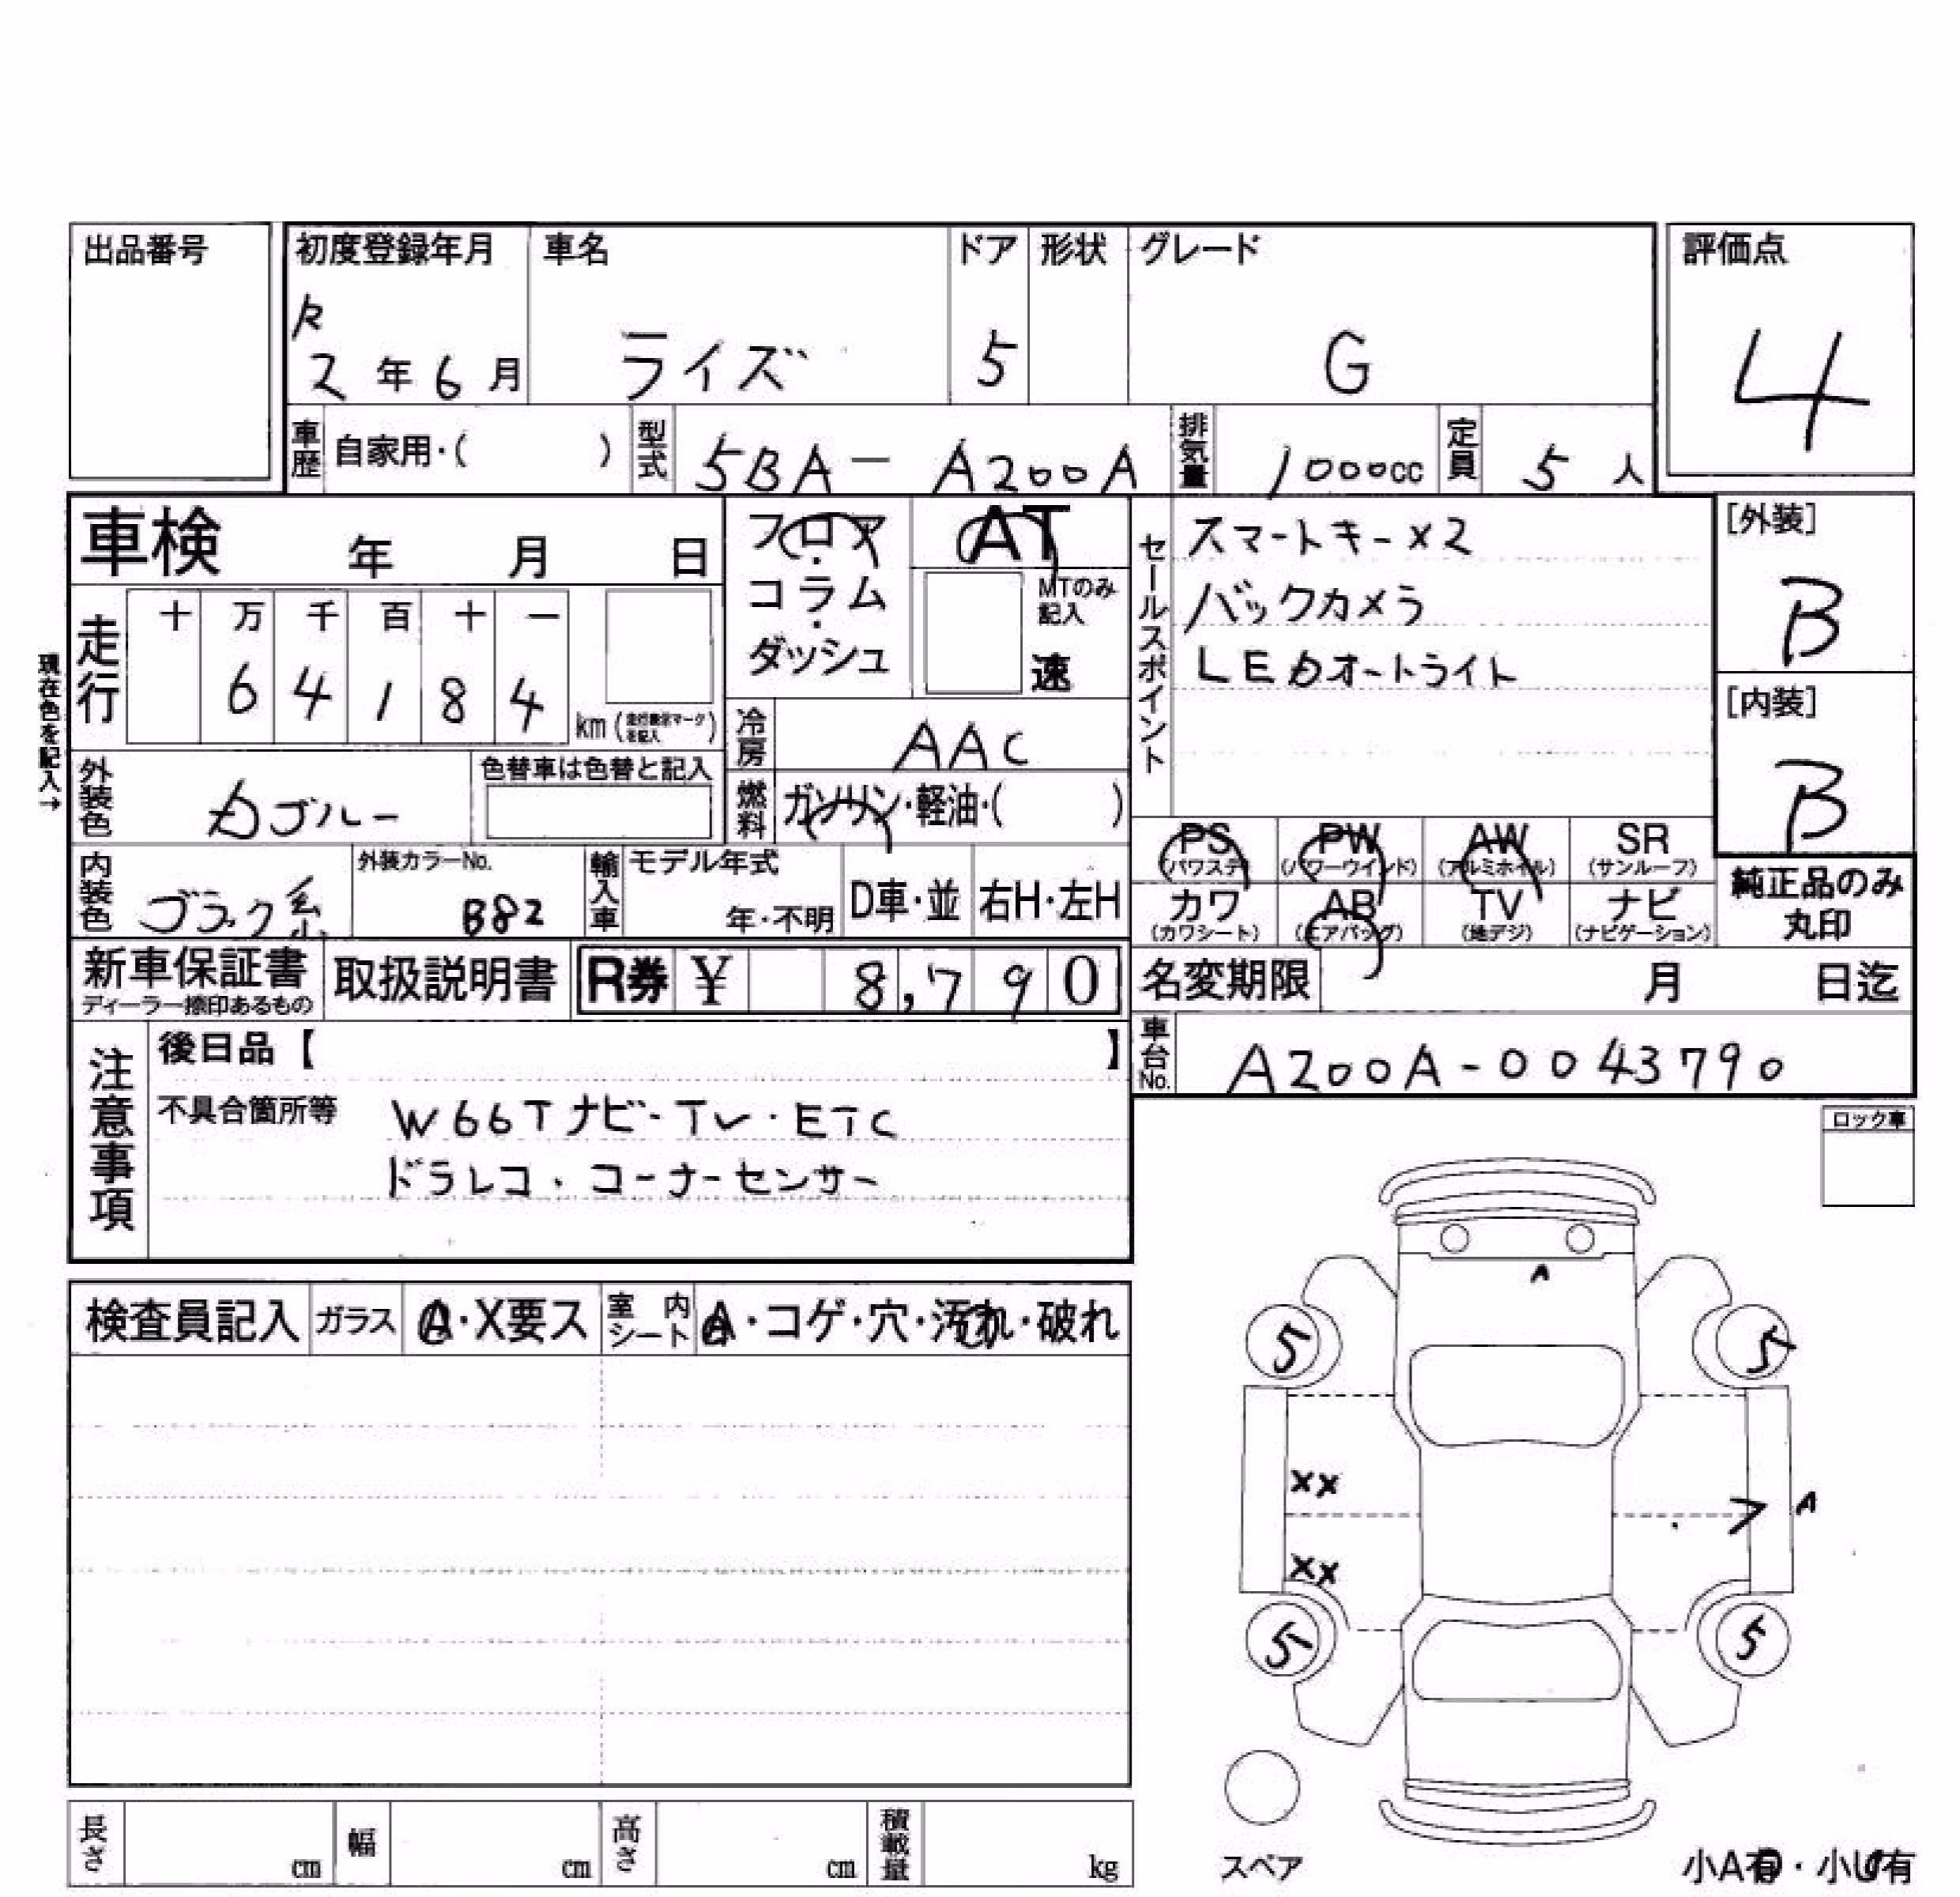 出品番号
初度登録年月 車名 ドア 形状 グレード 評価点
R 2年6月 ライズ 5 G 4
車歴 自家用・( ) 型式 5BA-A200A 排気量 1000cc 定員 5人
車検 年 月 日
フロア・コラム・ダッシュ
AT
MTのみ記入
速
セールスポイント
スマートキー×2
バックカメラ
LEDオートライト
[外装]
B
[内装]
B
現在色を記入→
走行 十 万 千 百 十 一
6 4 1 8 4 km
冷房 AAC
燃料 ガソリン・軽油・( )
外装色 ブルー 色替車は色替と記入
内装色 ブラック系 外装カラーNo. B82
輸入車 モデル年式 年・不明 D車・並 右H・左H
PS (パワステ) PW (パワーウインド) AW (アルミホイル) SR (サンルーフ)
カワ (カワシート) AB (エアバッグ) TV (地デジ) ナビ (ナビゲーション)
純正品のみ丸印
新車保証書 ディーラー捺印あるもの 取扱説明書 R券 ¥ 8,790
名変期限 月 日迄
車台No. A200A-0043790
注意事項
後日品【 】
不具合箇所等 W66Tナビ・TV・ETC
ドラレコ・コーナーセンサー
ロック車
検査員記入 ガラス A・X要ス 室内シート A・コゲ・穴・汚れ・破れ
A
5 5
XX
A
XX
5 5
スペア
小A有・小U有
長さ cm 幅 cm 高さ cm 積載量 kg